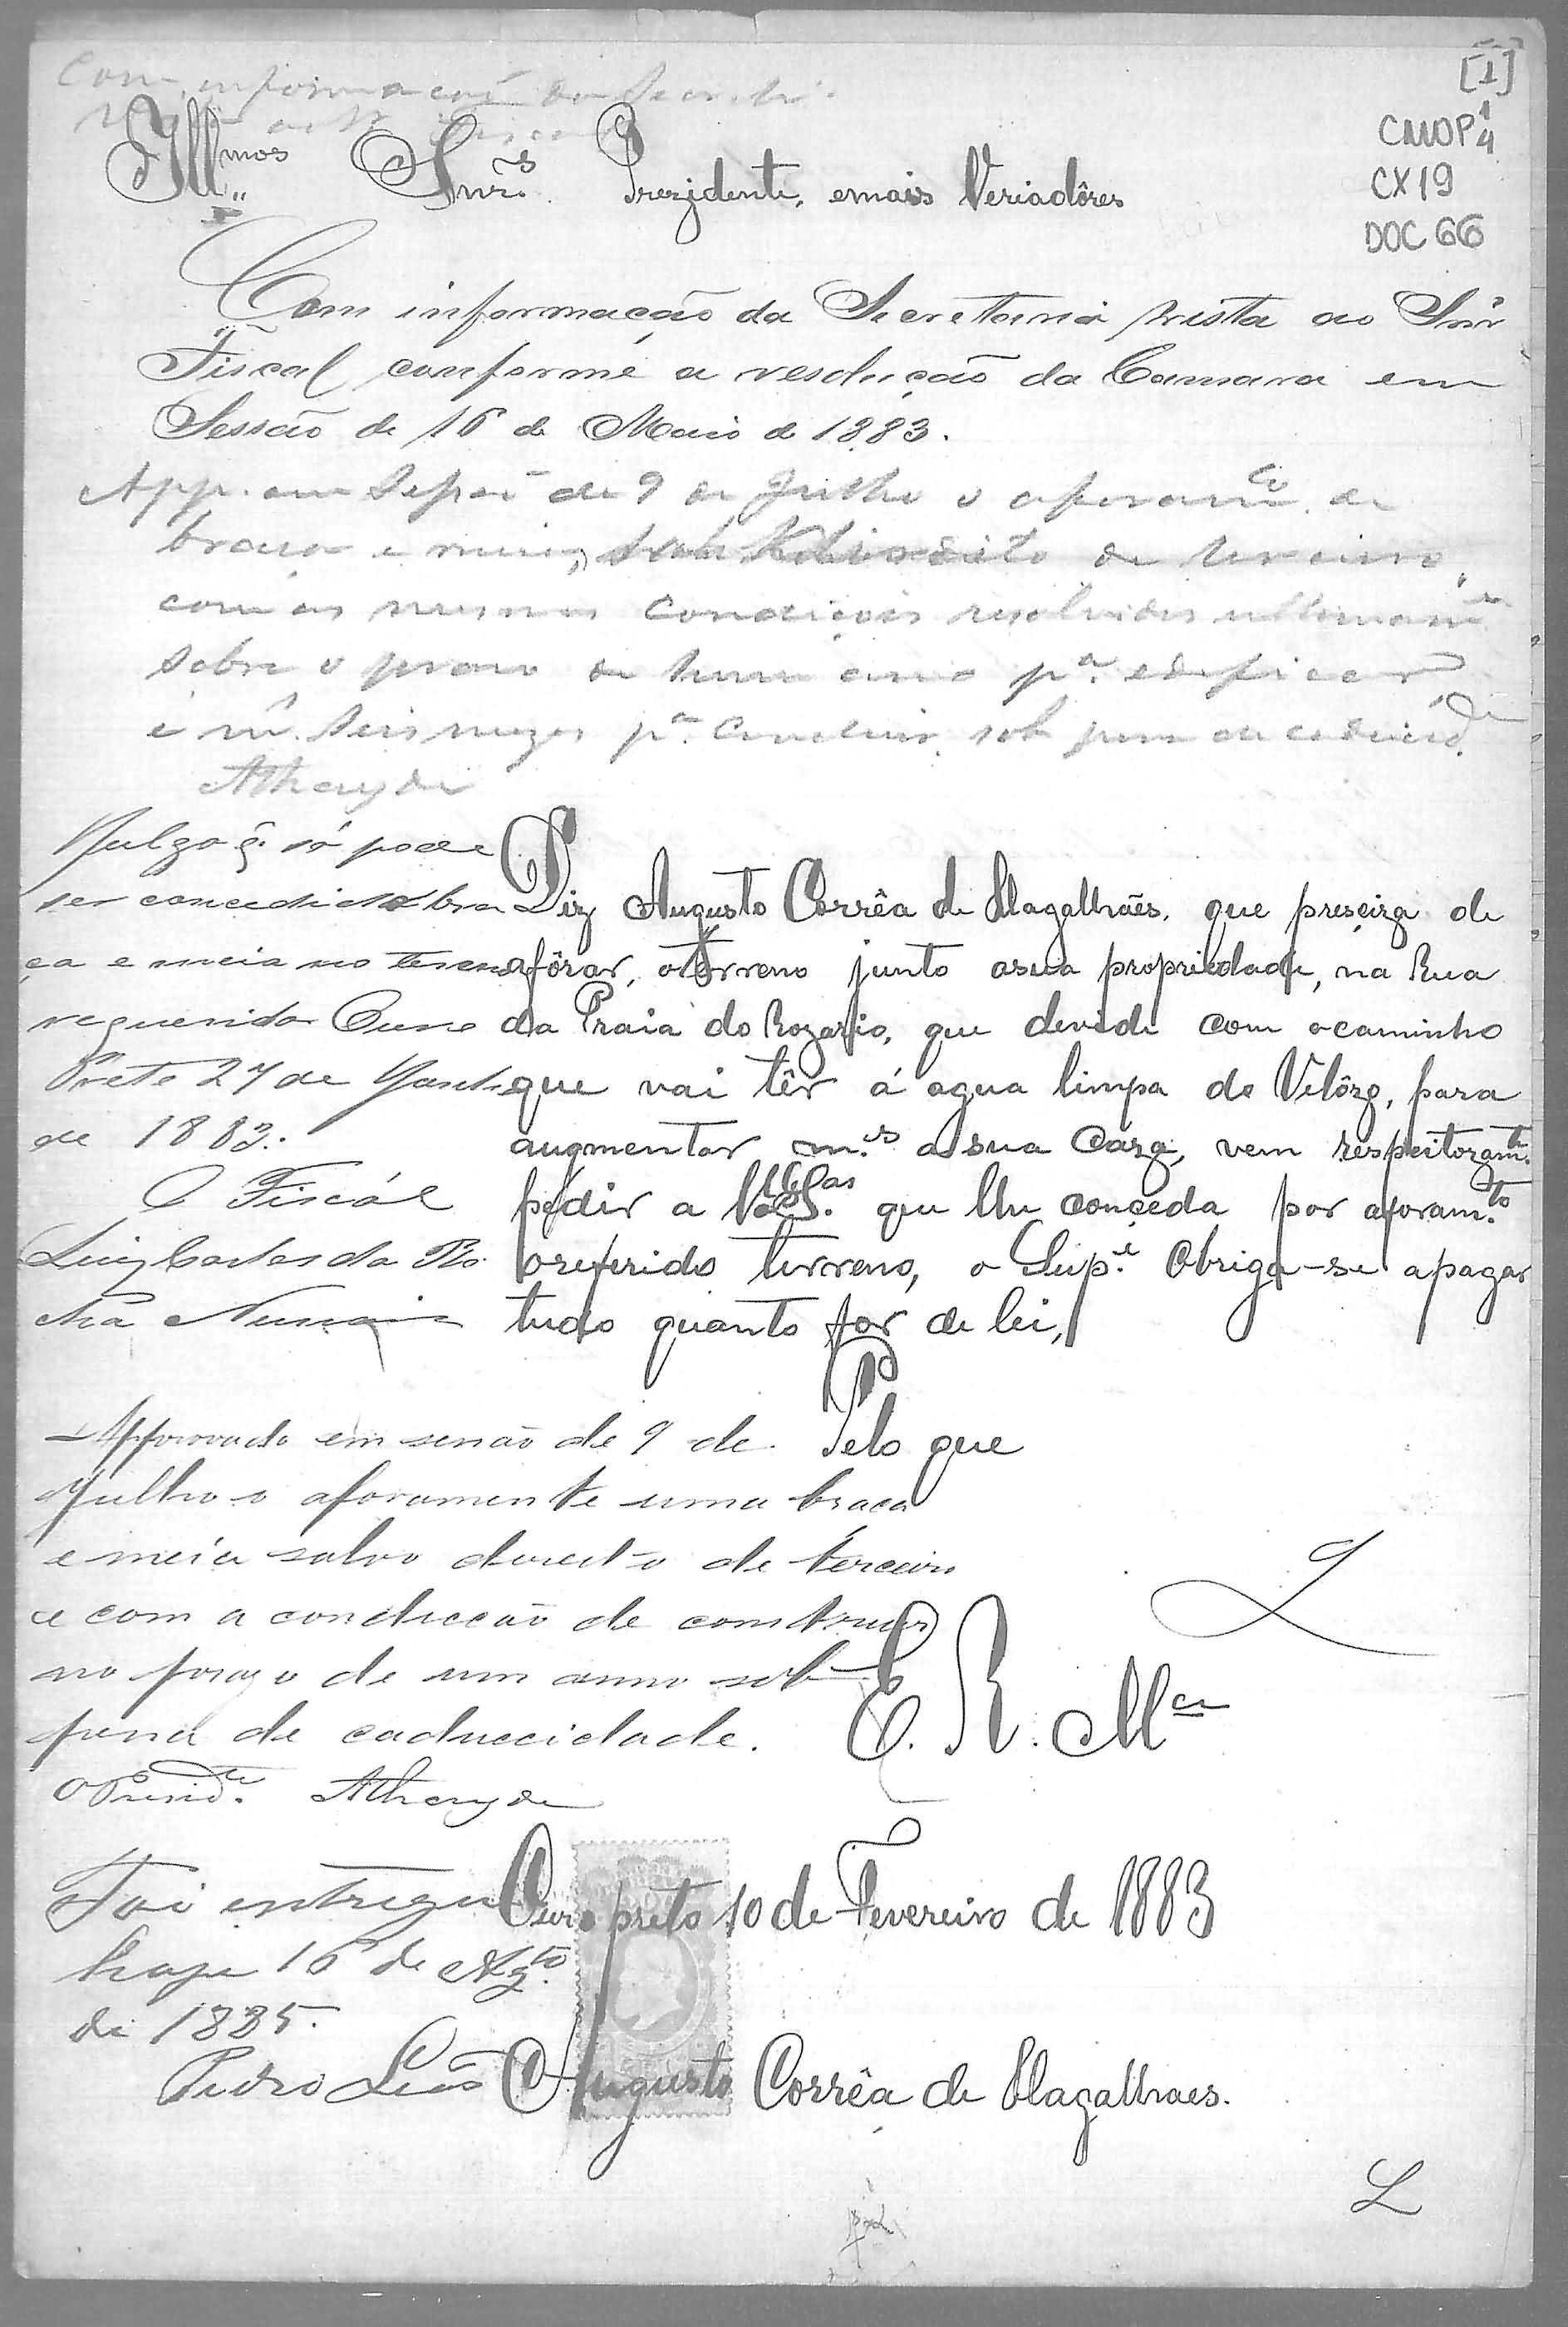 [1]
CMOP 1/4
CX 19
DOC 66
Com informação da Secretr.ª
Ill.mos Snr.s Prezidente, emais Veriadôres
Com informação da Secretaria vista ao Snr
Fiscal conforme a resolução da Camara em
Sessão de 16 de Maio de 1883.
App. em Sessão de 9 de Julho o aforam.to de
braça e meia, de terceiro,
com as mesmas condiçoes resolvidas ultimam.e
sobre o prazo de hum anno p.a edificar
e seis mezes p.a concluir, sob pena de caducid.de
Athayde
Julgo q. só pode
ser concedido bra
ça e meia no terreno
requerido Ouro
Preto 27 de Junho
de 1883.
O Fiscál
Luiz Carlos da Ro
cha
Diz Augusto Corrêa de Magalhães, que preseiza de
afôrar, oterreno junto asua propriedade, na Rua
da Praia do Rozario, que devide com ocaminho
que vai têr á agua limpa do Velôzo, para
augmentar m.es a sua Caza, vem respeitozam.te
pedir a V.as S.as que lhe conçeda por aforam.to
oreferido terreno, o Sup.e Obriga-se apagar
tudo quanto for de lei,
Pelo que
Approvado em sessão de 9 de
Julho o aforamento uma braça
e meia salvo direito de terceiro
e com a condicção de construir
no prazo de um anno sob
pena de caducidade.
O Presid.te Athayde
E. R. M.ce
Foi entregue
hoje 16 de Ag.to
de 1885.
Pedro Leão
Ouro preto 10 de Fevereiro de 1883
Augusto Corrêa de Magalhaes.